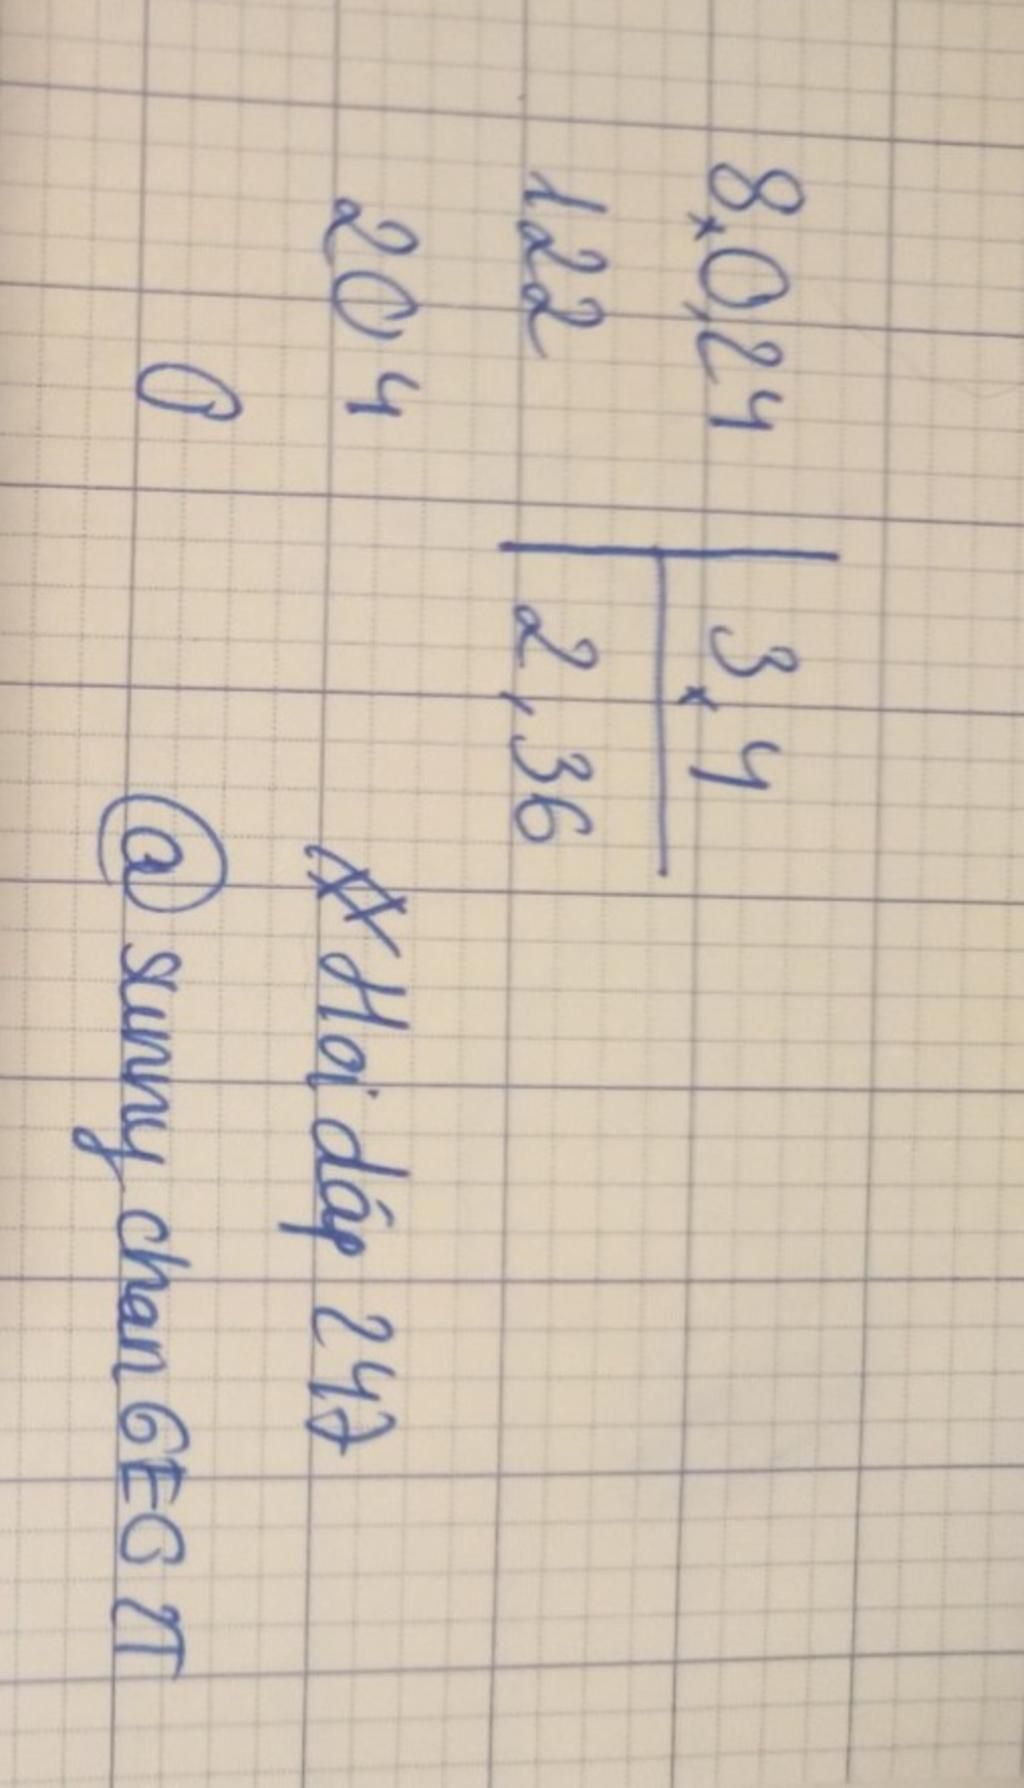 8,0,24 | 3,4
122 | 2,36
20 4
0
Hoi dáp 247
@ sunny chan